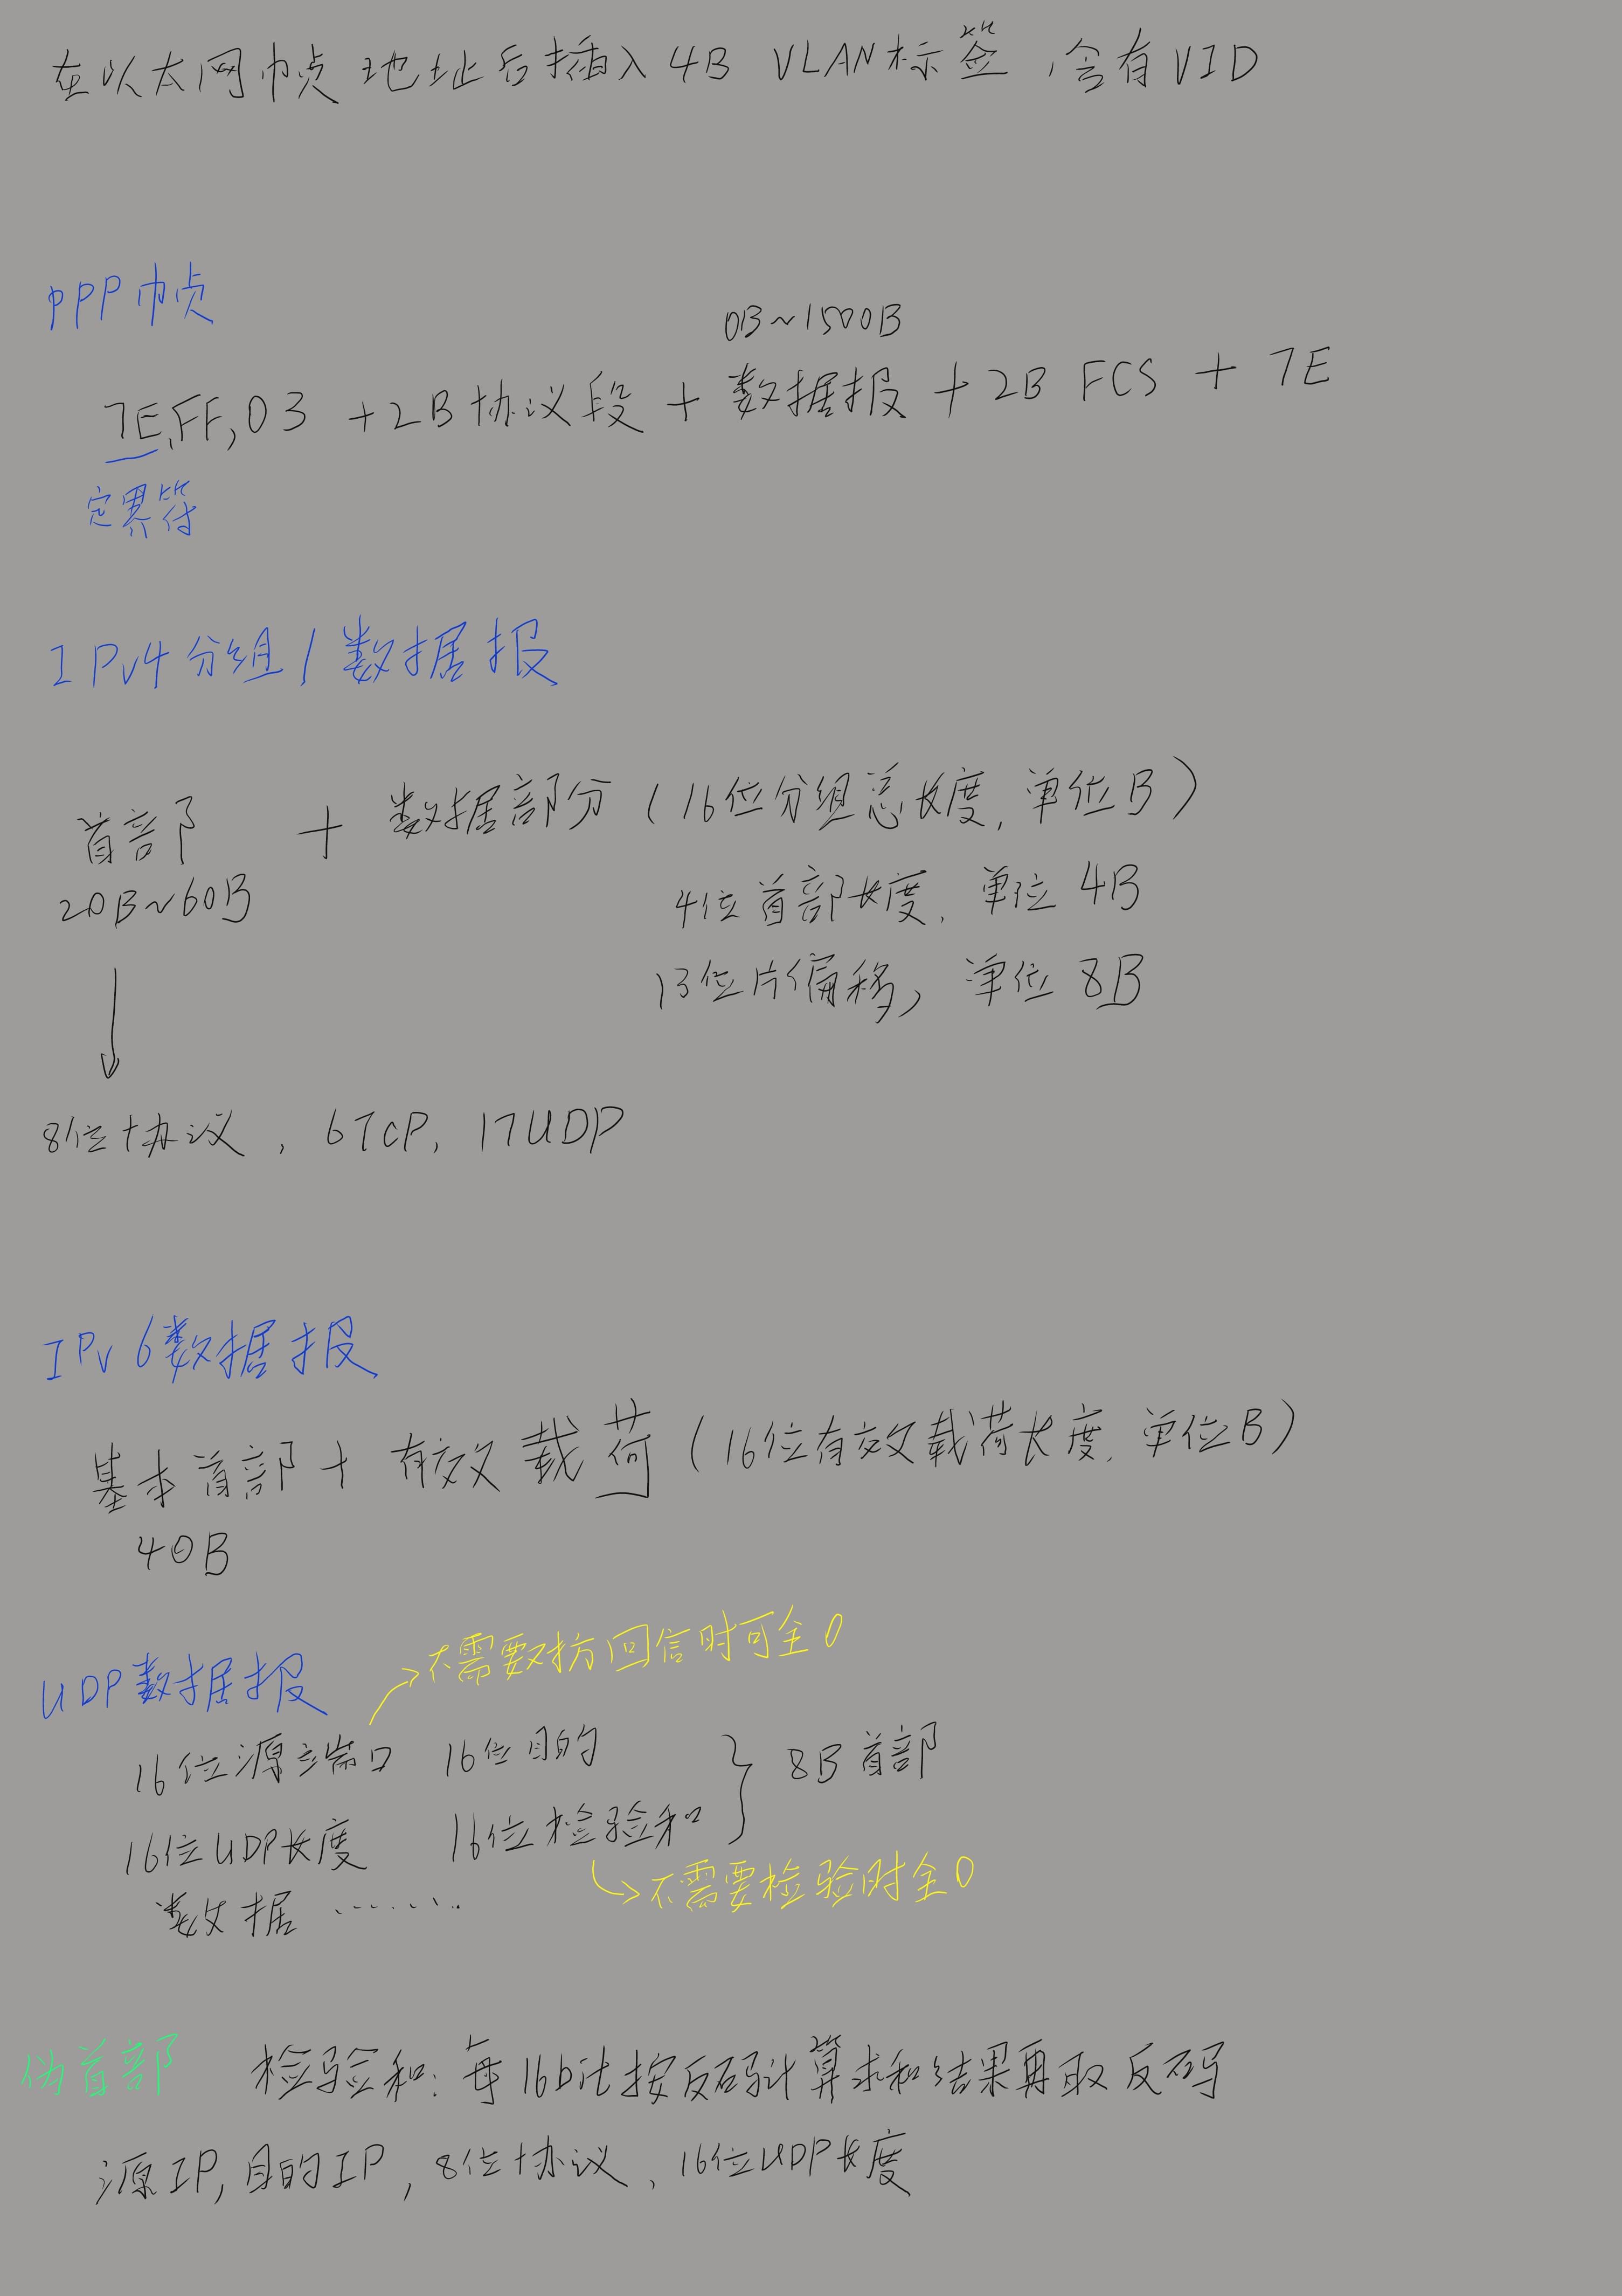 在以太网帧地址后插入4B VLAN标签,含有VID
PPP帧
0B~1500B
7E,FF,03 +2B协议段 + 数据报 + 2B FCS + 7E
定界符
IPv4分组/数据报
首部 + 数据部分(16位分组总长度,单位B)
20B~60B
4位首部长度,单位4B
13位片偏移,单位8B
8位协议,6TCP,17UDP
IPv6数据报
基本首部+有效载荷(16位有效载荷长度,单位B)
40B
UDP数据报
不需要对方回信时可全0
16位源端口 16位目的
8B首部
16位UDP长度 16位检验和
不需要检验时全0
数据········
伪首部 检验和:每16bit按反码计算求和结果再取反码
源IP,目的IP,8位协议,16位UDP长度